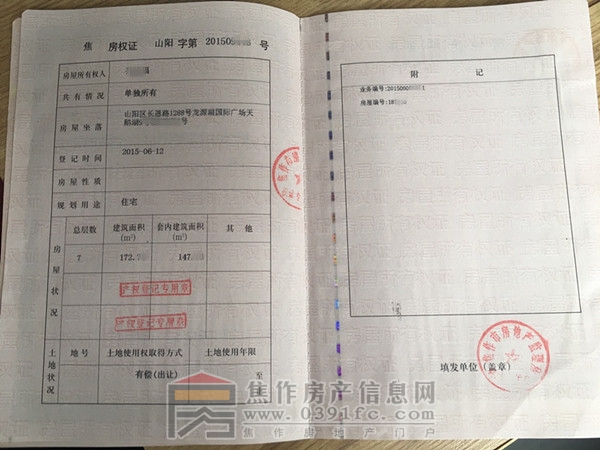 焦 房权证 山阳 字第 201509 号
房屋所有权人
共有情况 单独所有
房屋坐落 山阳区长恩路1289号龙源湖国际广场天
鹅湖
登记时间 2015-06-12
房屋性质
规划用途 住宅
房屋状况
总层数 建筑面积(m²) 套内建筑面积(m²) 其他
7 172. 147
产权登记专用章
产权登记专用章
土地状况
地号 土地使用权取得方式 土地使用年限
有偿(出让) 至
附记
业务编号:201509 1
房屋编号:18
填发单位(盖章)
焦作房产信息网
www.0391fc.com
焦作房地产门户